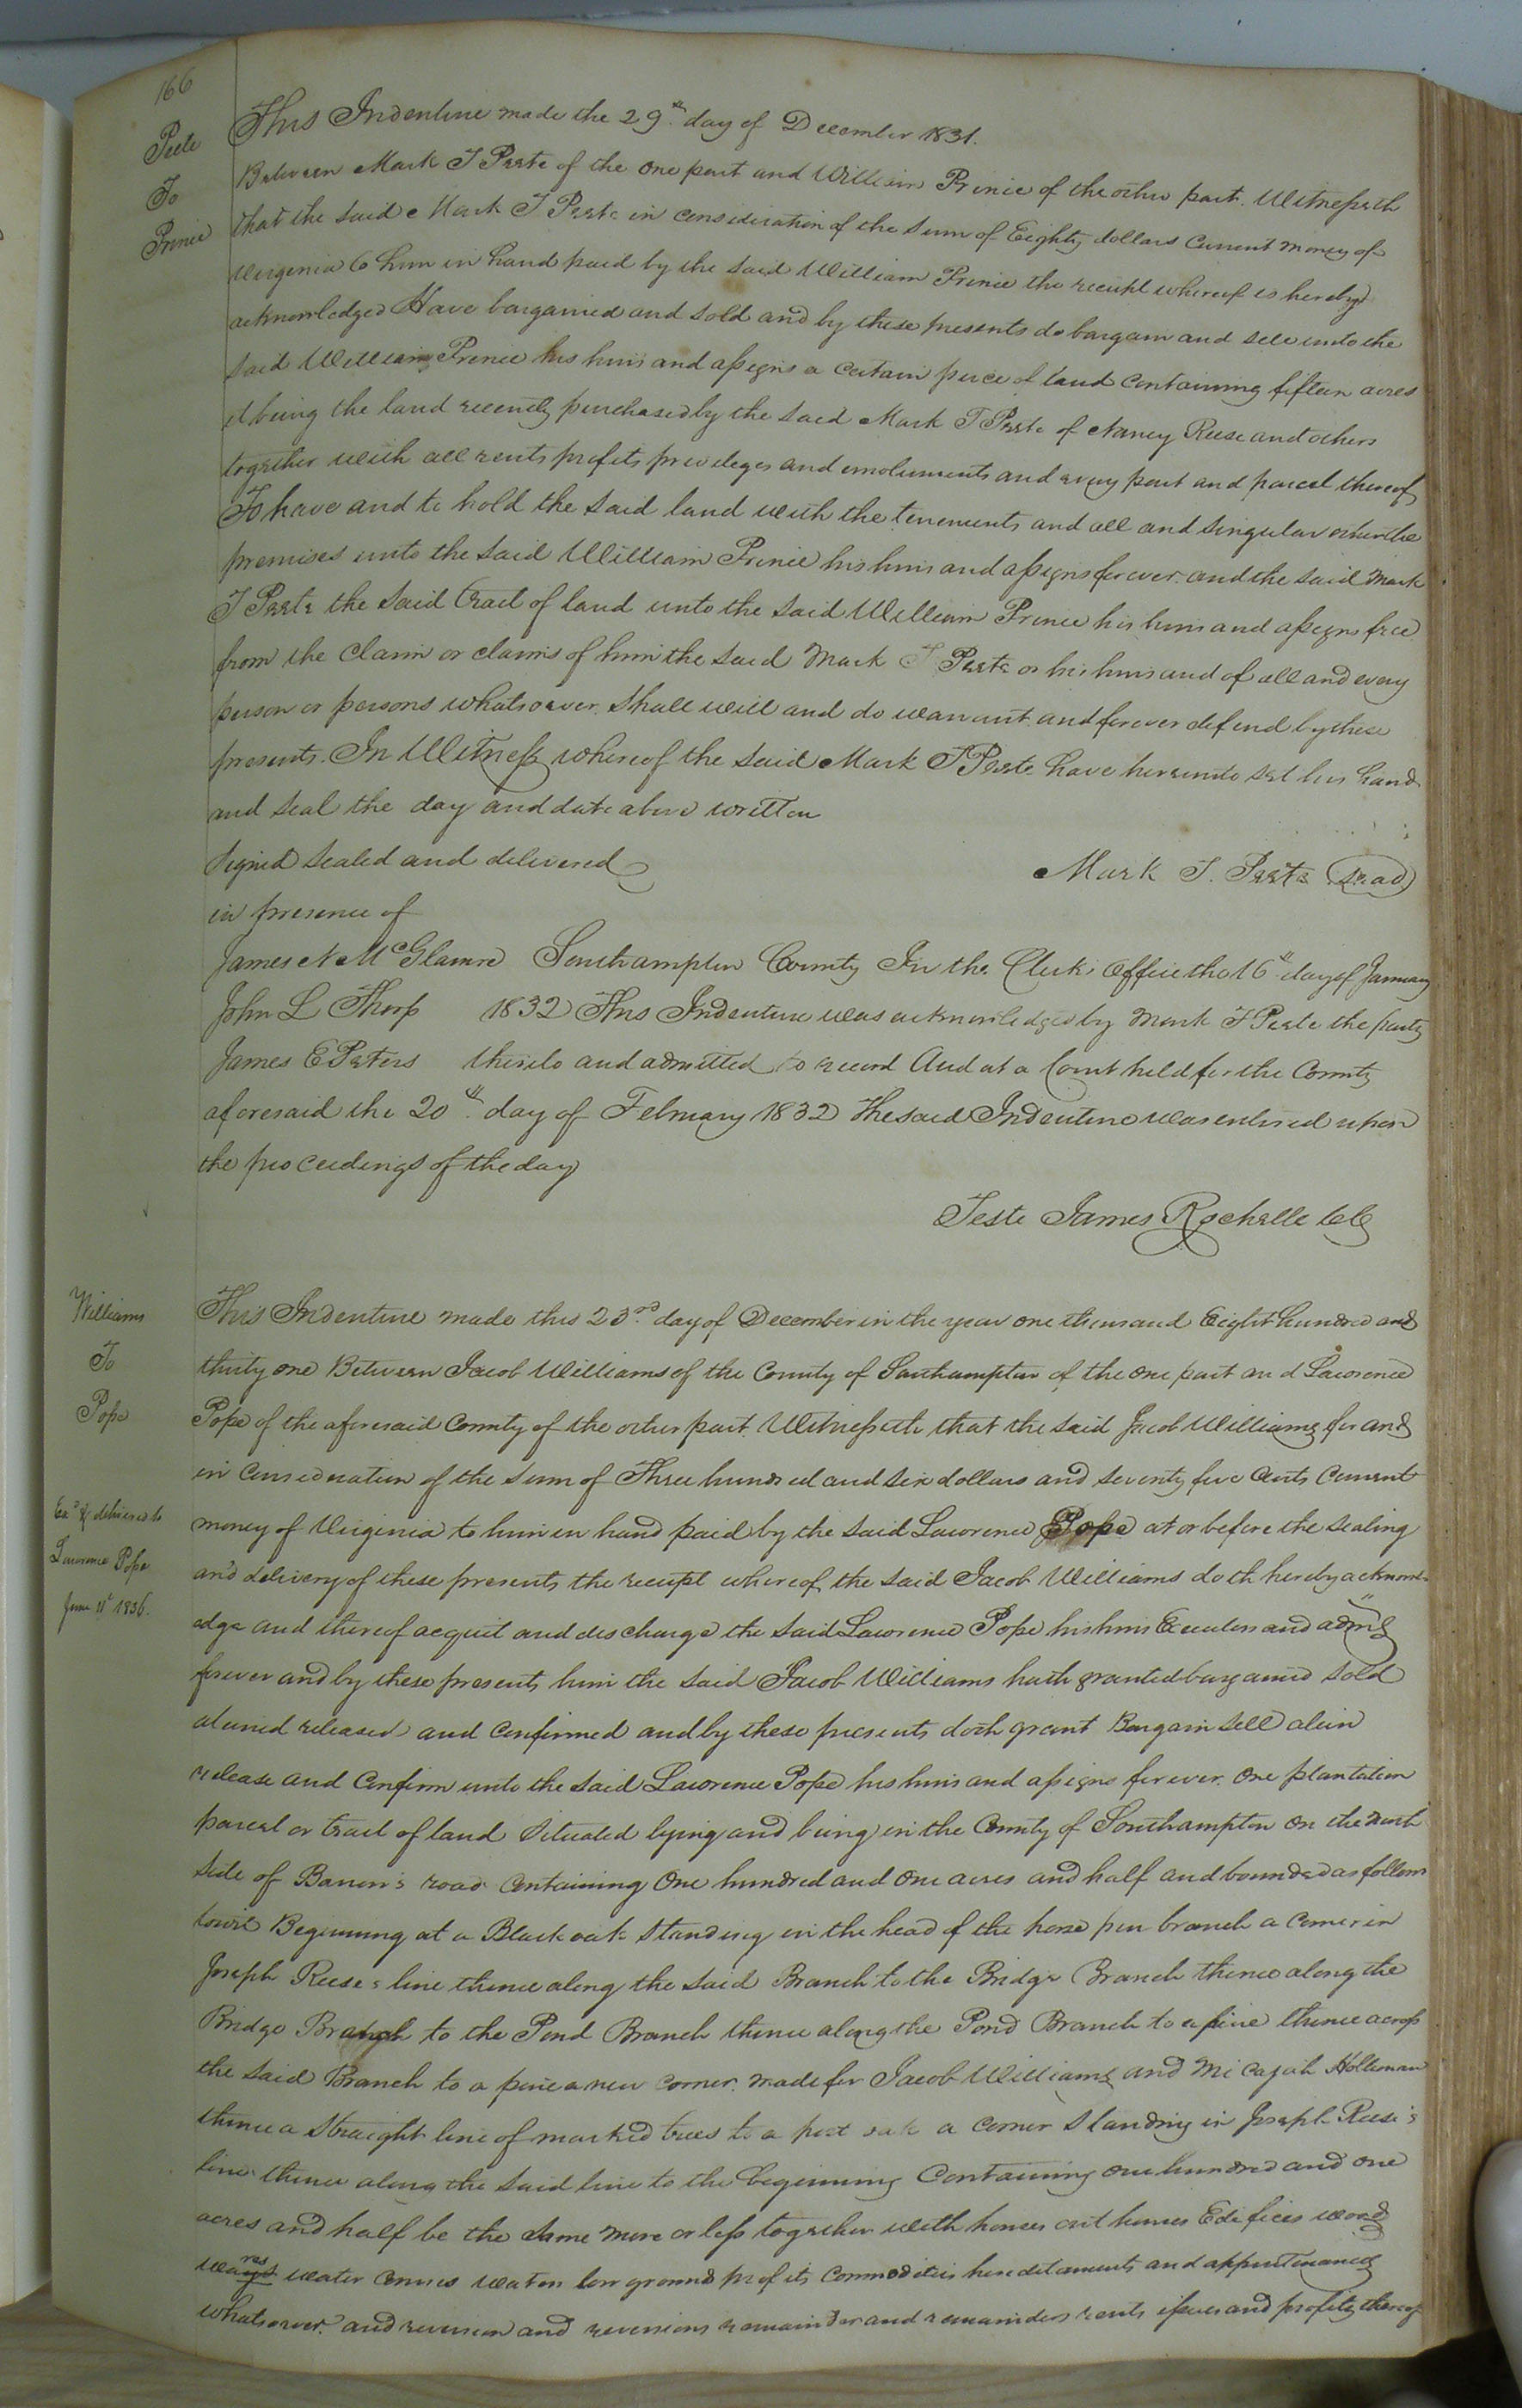 166
Peete
To
Prince
This Indenture made the 29th day of December 1831.
Between Mark T Peete of the one part and William Prince of the other part. Witnesseth
that the said Mark T Peete in consideration of the sum of Eighty dollars Current money of
Virginia to him in hand paid by the said William Prince the receipt whereof is hereby
acknowledged Have bargained and sold and by these presents do bargain and sell unto the
said William Prince his heirs and assigns a certain piece of land containing fifteen acres
it being the land recently purchased by the said Mark T Peete of Nancy Reese and others
together with all rents profits priveleges and emoluments and every part and parcel thereof
To have and to hold the said land with the tenements and all and singular other the
premises unto the said William Prince his heirs and assigns forever. and the said Mark
T Peete the said tract of land unto the said William Prince his heirs and assigns free
from the claim or claims of him the said Mark T Peete or his heirs and of all and every
person or persons whatsoever. shall will and do warrant and forever defend by these
presents. In Witness whereof the said Mark T Peete have hereunto set his hand
and seal the day and date above written
Signed sealed and delivered
Mark T. Peete (seal)
in presence of
James N McGlamre Southampton County In the Clerks office the 16th day of January
John L Thorp 1832 This Indenture was acknowledged by Mark T Peete the party
James E Peters thereto and admitted to record And at a Court held for the County
aforesaid the 20th day of February 1832 The said Indenture was entered upon
the proceedings of the day
Teste James Rochelle CC
Williams
To
Pope
Exd & delivered to
Lawrence Pope
June 11th 1836.
This Indenture made this 23rd day of December in the year one thousand Eight hundred and
thirty one Between Jacob Williams of the County of Southampton of the one part and Lawrence
Pope of the aforesaid County of the other part. Witnesseth that the said Jacob Williams for and
in consideration of the sum of Three hundred and six dollars and seventy five Cents Current
money of Virginia to him in hand paid by the said Lawrence Pope at or before the sealing
and delivery of these presents the receipt whereof the said Jacob Williams doth hereby acknowl-
edge and thereof acquit and discharge the said Lawrence Pope his heirs Executors and admrs
forever and by these presents him the said Jacob Williams hath granted bargained sold
aliened released and Confirmed and by these presents doth grant Bargain sell alein
release and Confirm unto the said Lawrence Pope his heirs and assigns forever. One plantation
parcel or tract of land Situated lying and being in the County of Southampton on the north
side of Barrow's road Containing One hundred and one acres and half and bounded as follows
towit Beginning at a Black oak standing in the head of the horse pen branch a corner in
Joseph Reese's line thence along the said Branch to the Bridge Branch thence along the
Bridge Branch to the Pond Branch thence along the Pond Branch to a pine thence across
the said Branch to a pine a new corner. made for Jacob Williams and Micajah Holleman
thence a straight line of marked trees to a post oak a corner standing in Joseph Reese's
line thence along the said line to the beginning Containing one hundred and one
acres and half be the same more or less together with houses out houses Edifices woods
ways water courses low grounds profits Commodities hereditaments and appurtenances
whatsoever. and reversion and reversions remainder and remainders rents issues and profits thereof